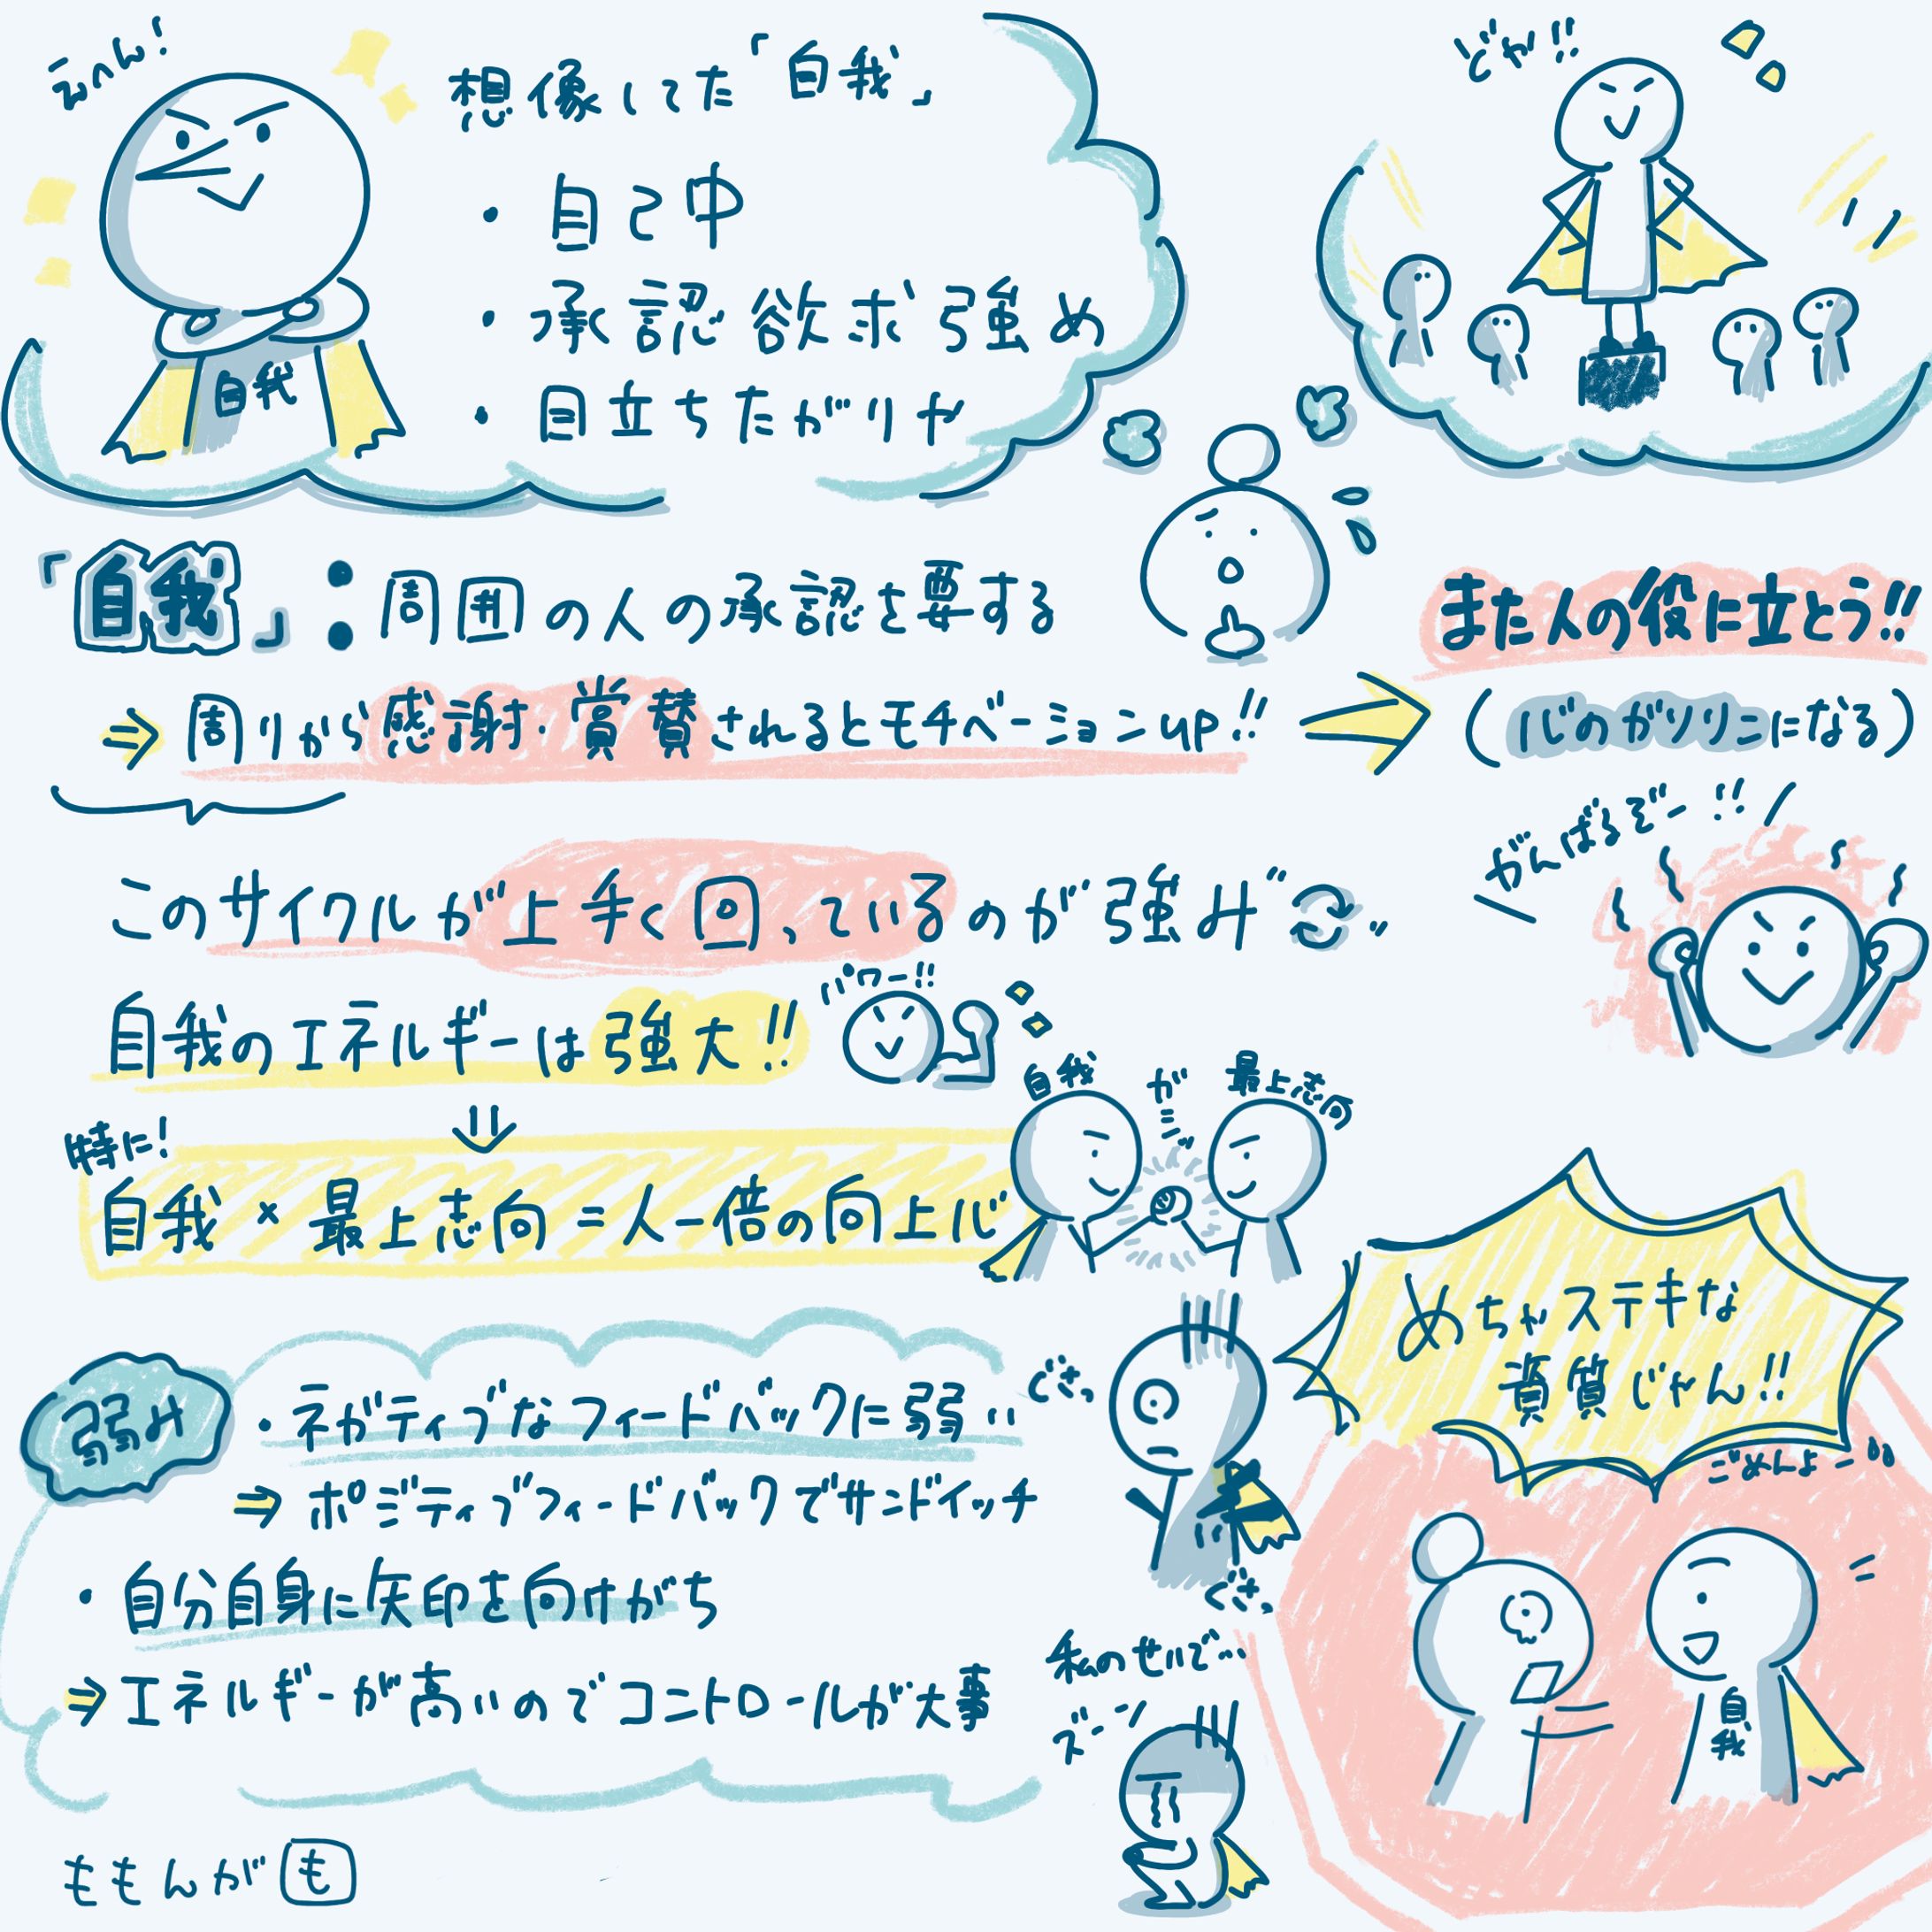 えへん!
想像してた「自我」
・自己中
・承認欲求強め
・目立ちたがりや
自我
どや!!
「自我」:周囲の人の承認を要する
⇒周りから感謝・賞賛されるとモチベーションup!!
→
また人の役に立とう!!
(心のガソリンになる)
がんばるぞー!!
このサイクルが上手く回っているのが"強み"
自我のエネルギーは強大!!
パワー!!
⇓
特に!
自我×最上志向=人一倍の向上心
自我
ガシッ
最上志向
弱み
・ネガティブなフィードバックに弱い
⇒ポジティブフィードバックでサンドイッチ
・自分自身に矢印を向けがち
⇒エネルギーが高いのでコントロールが大事
ぐさっ
ぐさっ
私のせいで…
ズーン
めちゃステキな
資質じゃん!!
ごめんよー
自我
ももんが も